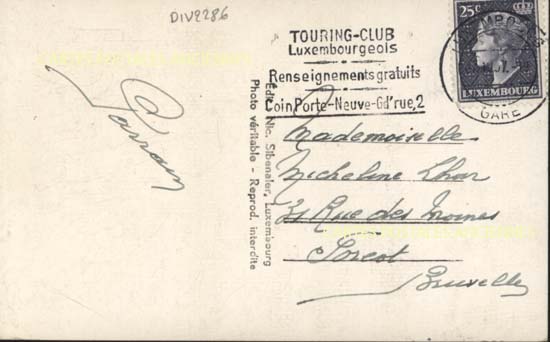 DIV2286
TOURING-CLUB
Luxembourgeois
Renseignements gratuits
Coin Porte-Neuve-Gd'rue,2
25c
LUXEMBOURG
GARE
Edit. Nic. Sibenaler, Luxembourg
Photo véritable - Reprod. interdite
Mademoiselle
Micheline
31 Rue des Moines
Bruxelles